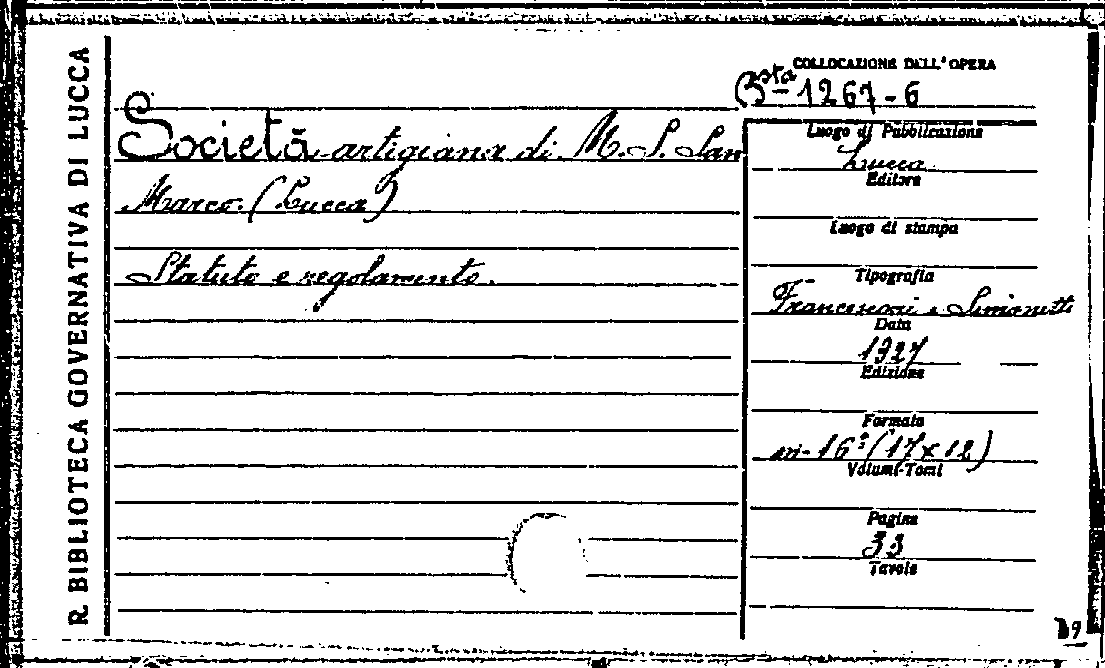 R. BIBLIOTECA GOVERNATIVA DI LUCCA
COLLOCAZIONE DELL'OPERA
Bsta 1267-6
Società artigiana di M. S. San
Marco. (Lucca)
Statuto e regolamento.
Luogo di Pubblicazione
Lucca
Editore
Luogo di stampa
Tipografia
Francesconi e Simonetti
Data
1927
Edizione
Formato
in-16° (17x12)
Volumi-Tomi
Pagine
33
Tavole